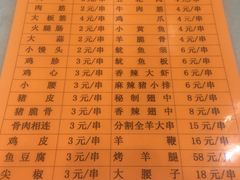 肉筋 2元/串 牛肉筋
大板筋 4元/串 鸡爪 4元/串
火腿肠 2元/串 小黄鱼 4元/串
大蒜 2元/串 羊脆骨 4元/串
小馒头 2元/串 鱿鱼须 6元/串
鸡胗 3元/串 鱿鱼板 6元/串
鸡心 3元/串 香辣大虾 6元/串
小腰 3元/串 麻辣猪小排 6元/串
猪皮 3元/串 秘制翅中 8元/串
猪脆骨 3元/串 香辣翅中 8元/串
骨肉相连 3元/串 分割全羊大串 15元/串
鸡皮 3元/串 羊鞭 16元/串
鱼豆腐 3元/串 烤羊腿 58元/串
尖椒 3元/串 大腰子 18元/串